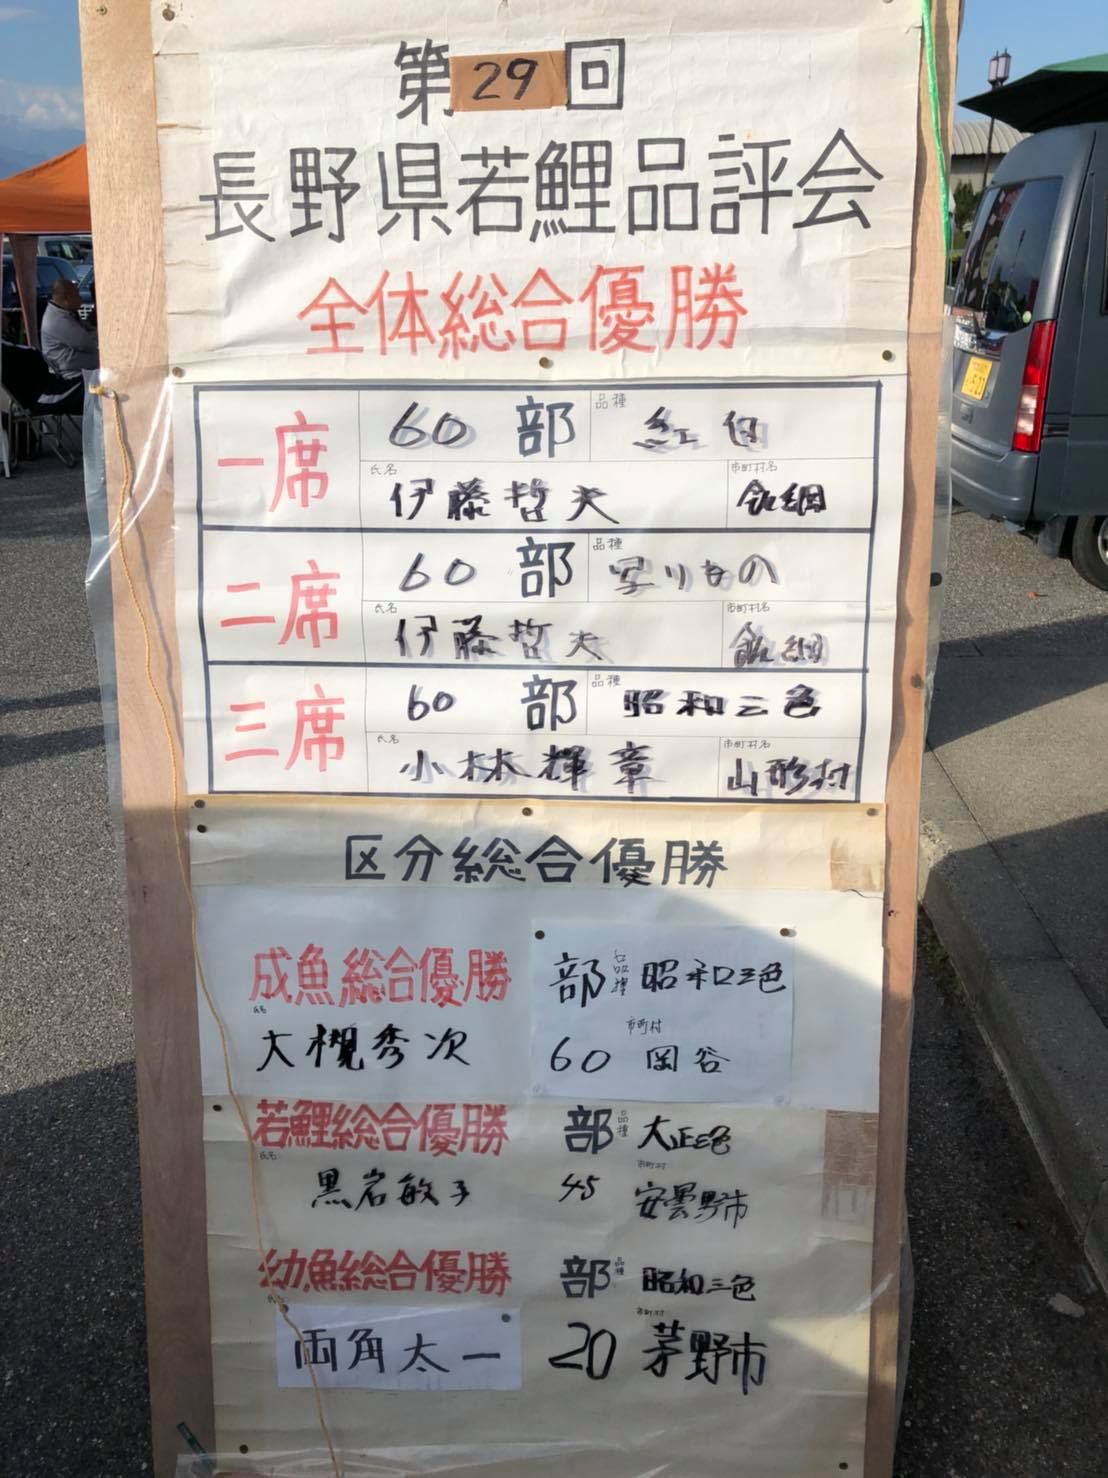 第29回
長野県若鯉品評会
全体総合優勝
一席 60 部 品種 紅白
氏名 伊藤哲夫 市町村名
二席 60 部 品種 写りもの
氏名 伊藤哲夫 市町村名
三席 60 部 品種 昭和三色
氏名 小林輝章 市町村名 山形村
区分総合優勝
成魚総合優勝 部 品種 昭和三色
氏名 大槻秀次 60 市町村 岡谷
若鯉総合優勝 部 品種 大正三色
氏名 黒岩敏子 45 市町村 安曇野市
幼魚総合優勝 部 品種 昭和三色
氏名 両角太一 20 市町村 茅野市